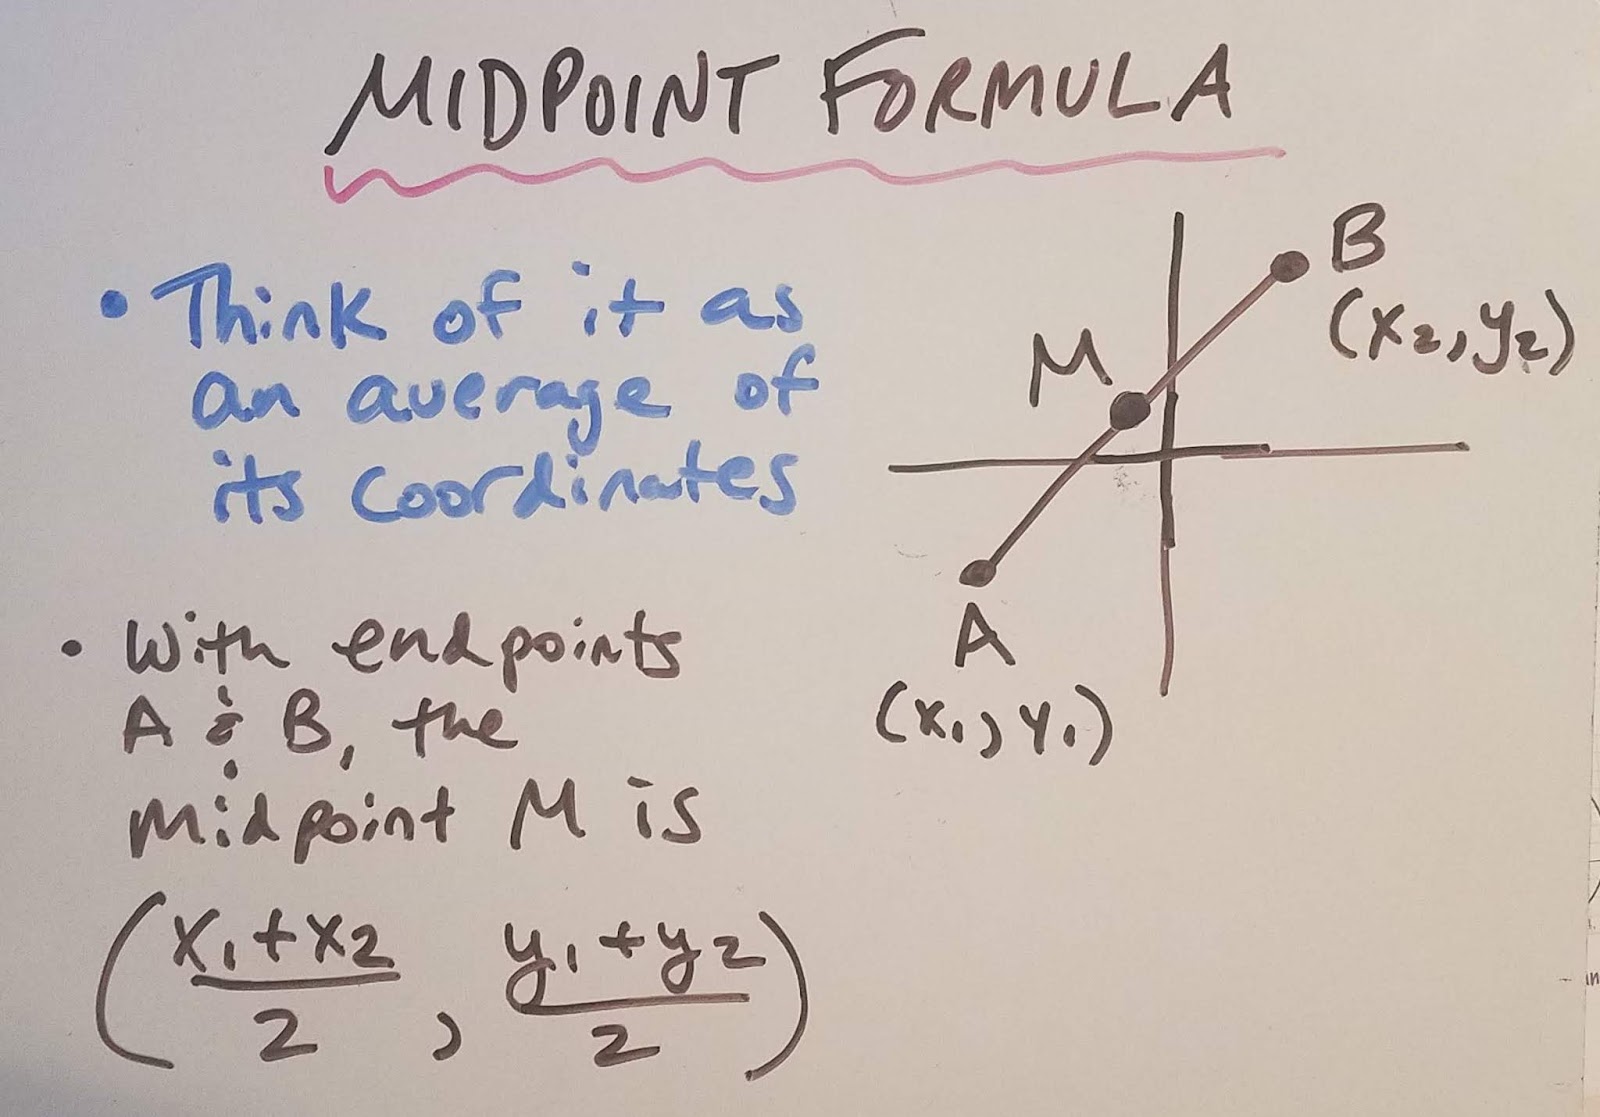 MIDPOINT FORMULA
• Think of it as
an average of
its coordinates
• With endpoints
A & B, the
midpoint M is
(x₁+x₂/2, y₁+y₂/2)
B
(x₂, y₂)
M
A
(x₁, y₁)